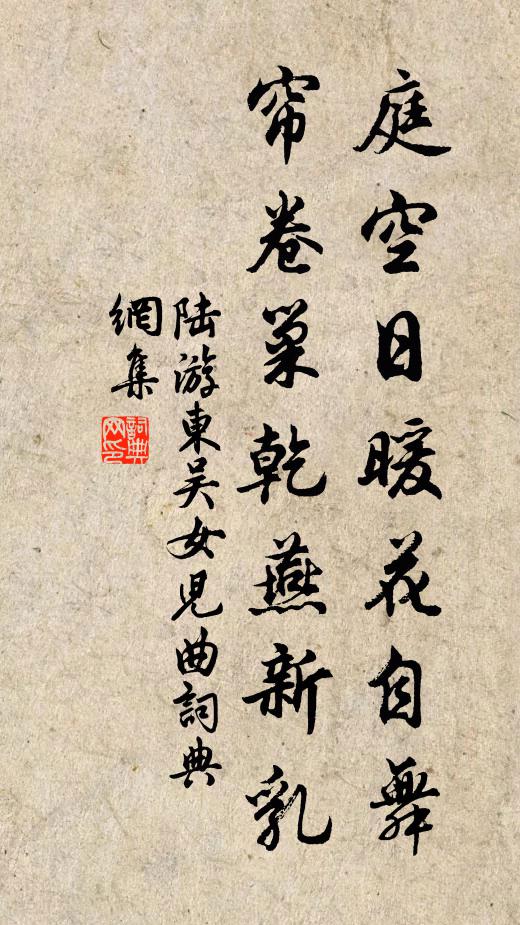 庭空日暖花自舞
帘卷巢乾燕新乳
陆游東吴女児曲詞典
網集
詞典
网印